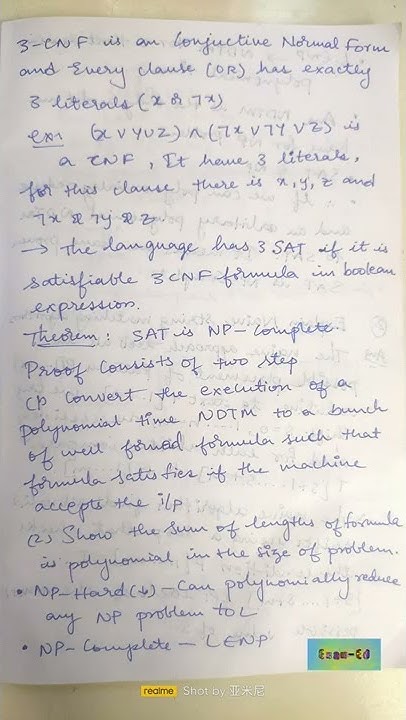 3-CNF is an Conjuctive Normal Form
and Every clause (OR) has exactly
3 literals (x or ¬x)
ex:- (x ∨ y ∪ z) ∧ (¬x ∨ ¬y ∨ z) is
a CNF, It have 3 literals,
for this clause there is x, y, z and
¬x ¬y z.
→ The language has 3 SAT if it is
satisfiable 3 CNF formula in boolean
expression.
Theorem: SAT is NP-Complete.
Proof Consists of two step
(1) Convert the execution of a
polynomial time NDTM to a bunch
of well formed formula such that
formula satisfies if the machine
accepts the i/p
(2) Show the sum of lengths of formula
is polynomial in the size of problem.
• NP-Hard(↓) - Can polynomially reduce
any NP problem to L
• NP-Complete - L∈NP
Exam-Ed
realme Shot by 亚米尼